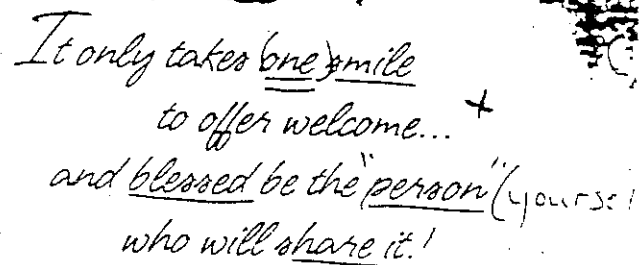 It only takes (one) smile
to offer welcome... +
and blessed be the "person" (yoursel
who will share it!